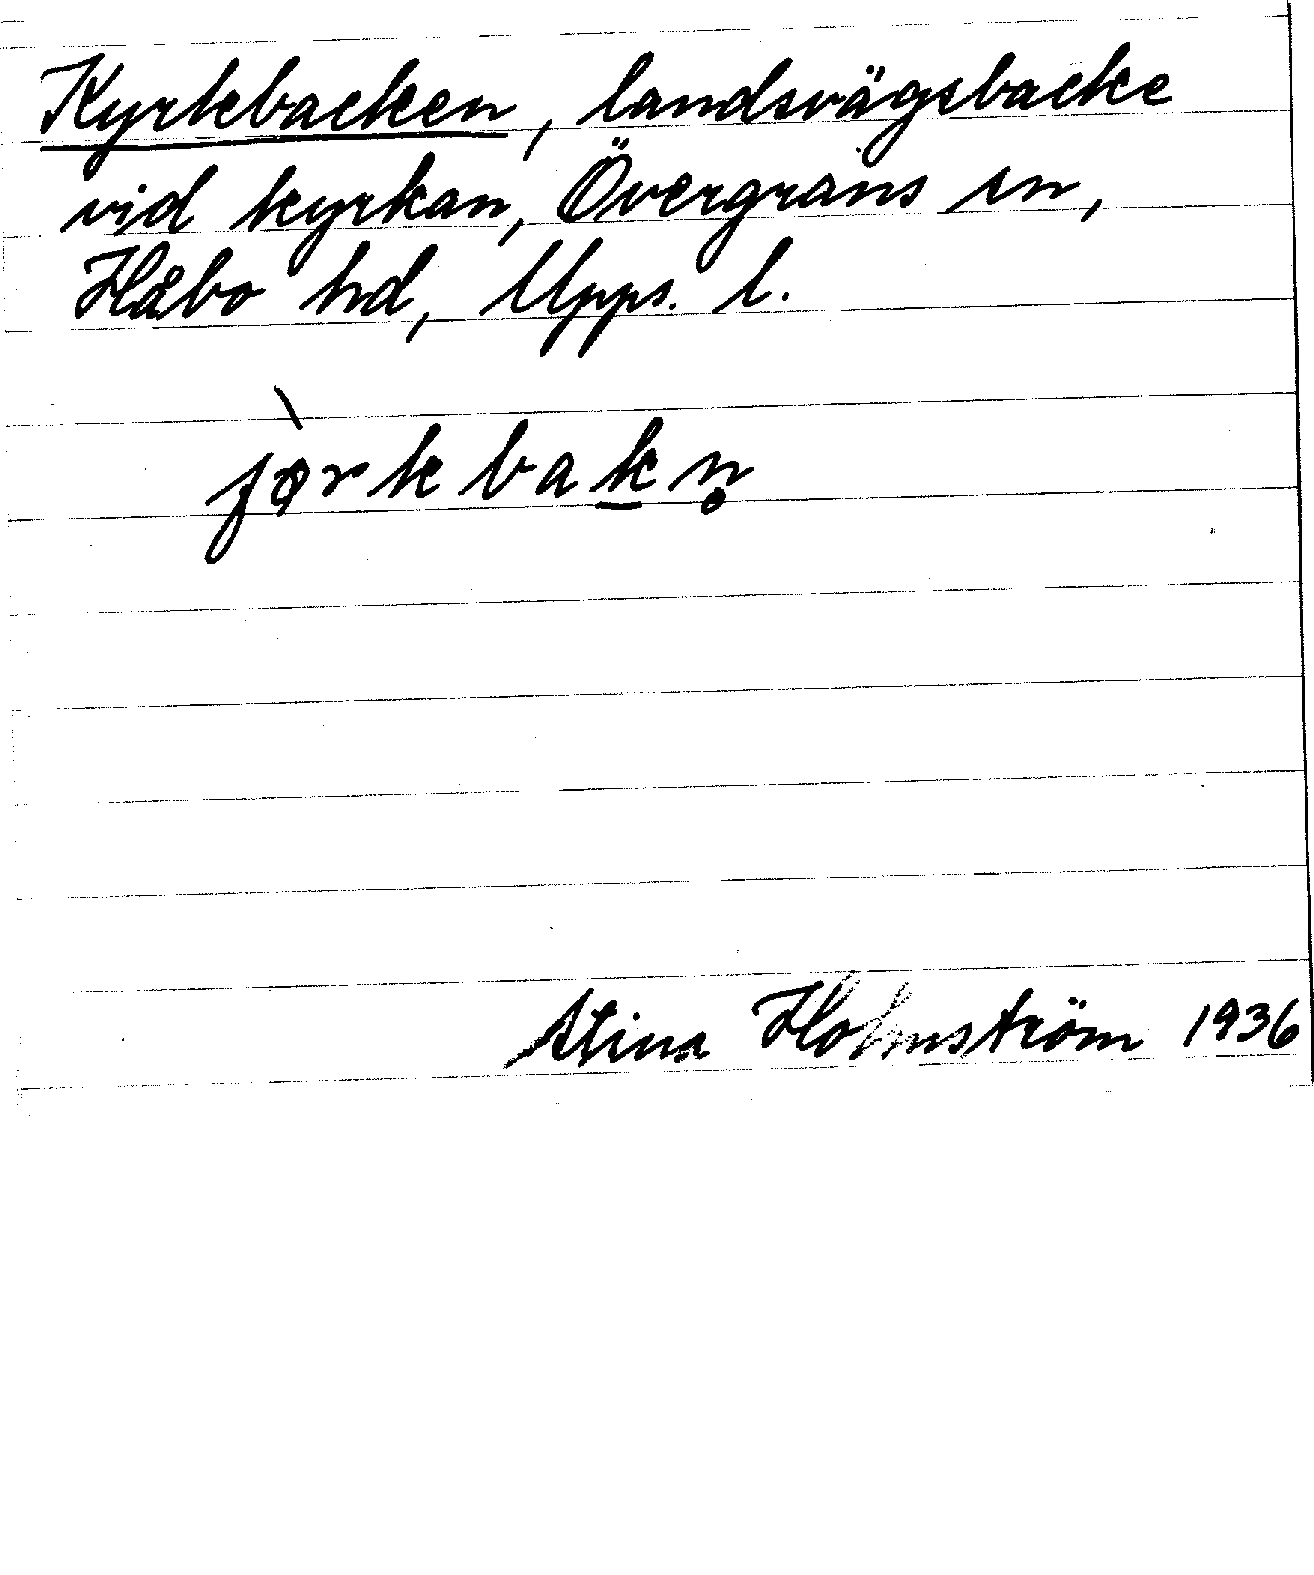 Kyrkbacken, landsvägsbacke
vid kyrkan, Övergrans sn,
Håbo hd, Upps. l.
Stina Holmström 1936